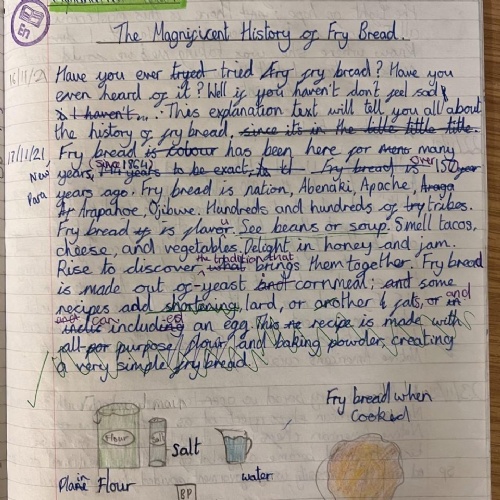 The Magnificent History of Fry Bread.
16/11/21 Have you ever tryed tried fry bread? Have you
even heard of it? Well if you haven't don't feel sad
I haven't... This explanation text will tell you all about
the history of fry bread, since its in the title title title.
17/11/21 Fry bread is colour has been here for many
New years, since 1864 years to be exact, Fry bread is over 150 year
Para years ago. Fry bread is nation, Abenaki, Apache,
Arapahoe, Ojibwe. Hundreds and hundreds of tribes.
Fry bread is flavour. See beans or soup. Small tacos,
cheese, and vegetables. Delight in honey and jam.
Rise to discover the tradition that what brings them together. Fry bread
is made out of yeast cornmeal; and some
recipes add shortening, lard, or another fats, or and
can including an egg. This recipe is made with
all-por purpose flour and baking powder, creating
a very simple fry bread.
Fry bread when
Cooked
Flour
Salt
salt
Plain Flour
BP
water
En